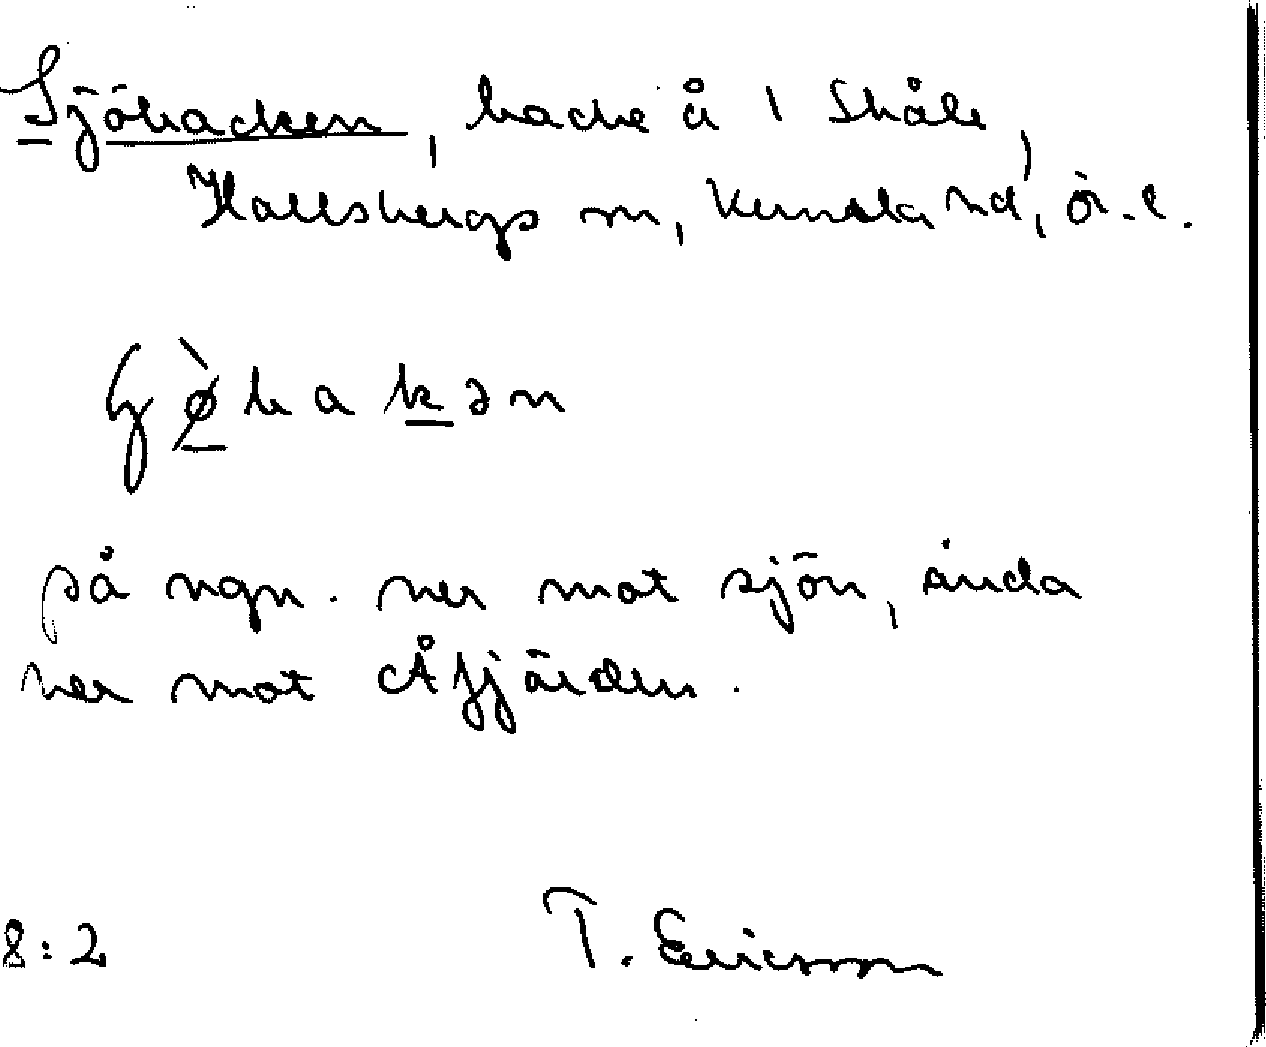 Sjöbacken, backe å 1 Skåle,
Hallsbergs sn, Kumla hd, ör. l.
så ngn. ner mot sjön, ända
ner mot Åfjärden.
8:2 T. Ericsson